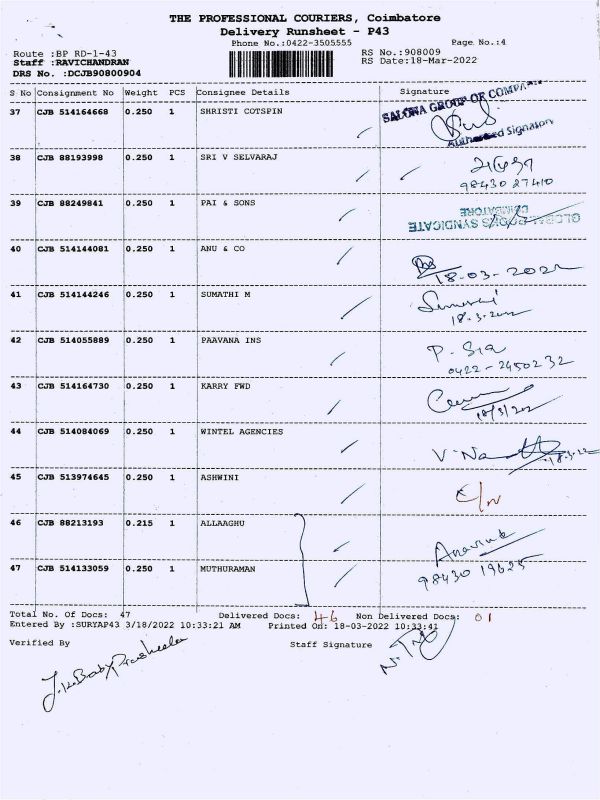 THE PROFESSIONAL COURIERS, Coimbatore
Delivery Runsheet - P43
Phone No.:0422-3505555 Page No.:4
Route :BP RD-1-43 RS No.:908009
Staff :RAVICHANDRAN RS Date:18-Mar-2022
DRS No. :DCJB90800904
S No Consignment No Weight PCS Consignee Details Signature
37 CJB 514164668 0.250 1 SHRISTI COTSPIN
SALONA GROUP OF COMPA
Authorised Signatory
38 CJB 88193998 0.250 1 SRI V SELVARAJ
98430 27410
39 CJB 88249841 0.250 1 PAI & SONS
GLOBAL BOOKS SYNDICATE
COIMBATORE
40 CJB 514144081 0.250 1 ANU & CO
18-03-2022
41 CJB 514144246 0.250 1 SUMATHI M
18-3-2022
42 CJB 514055889 0.250 1 PAAVANA INS
0422-2450232
43 CJB 514164730 0.250 1 KARRY FWD
18/3/202
44 CJB 514084069 0.250 1 WINTEL AGENCIES
18.3.22
45 CJB 513974645 0.250 1 ASHWINI
46 CJB 88213193 0.215 1 ALLAAGHU
47 CJB 514133059 0.250 1 MUTHURAMAN
98430 19625
Total No. Of Docs: 47 Delivered Docs: 46 Non Delivered Docs: 01
Entered By :SURYAP43 3/18/2022 10:33:21 AM Printed On: 18-03-2022 10:33:41
Verified By Staff Signature